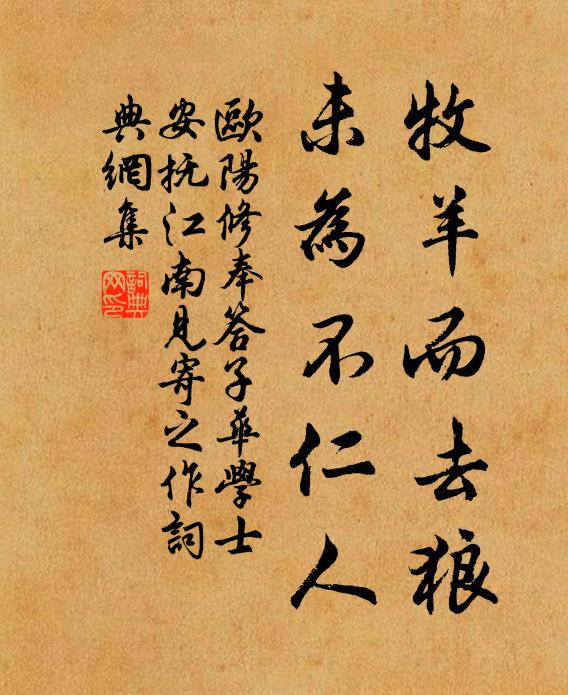 牧羊而去狼
未為不仁人
歐陽修奉答子華學士
安抚江南見寄之作詞
典網集
詞典網印